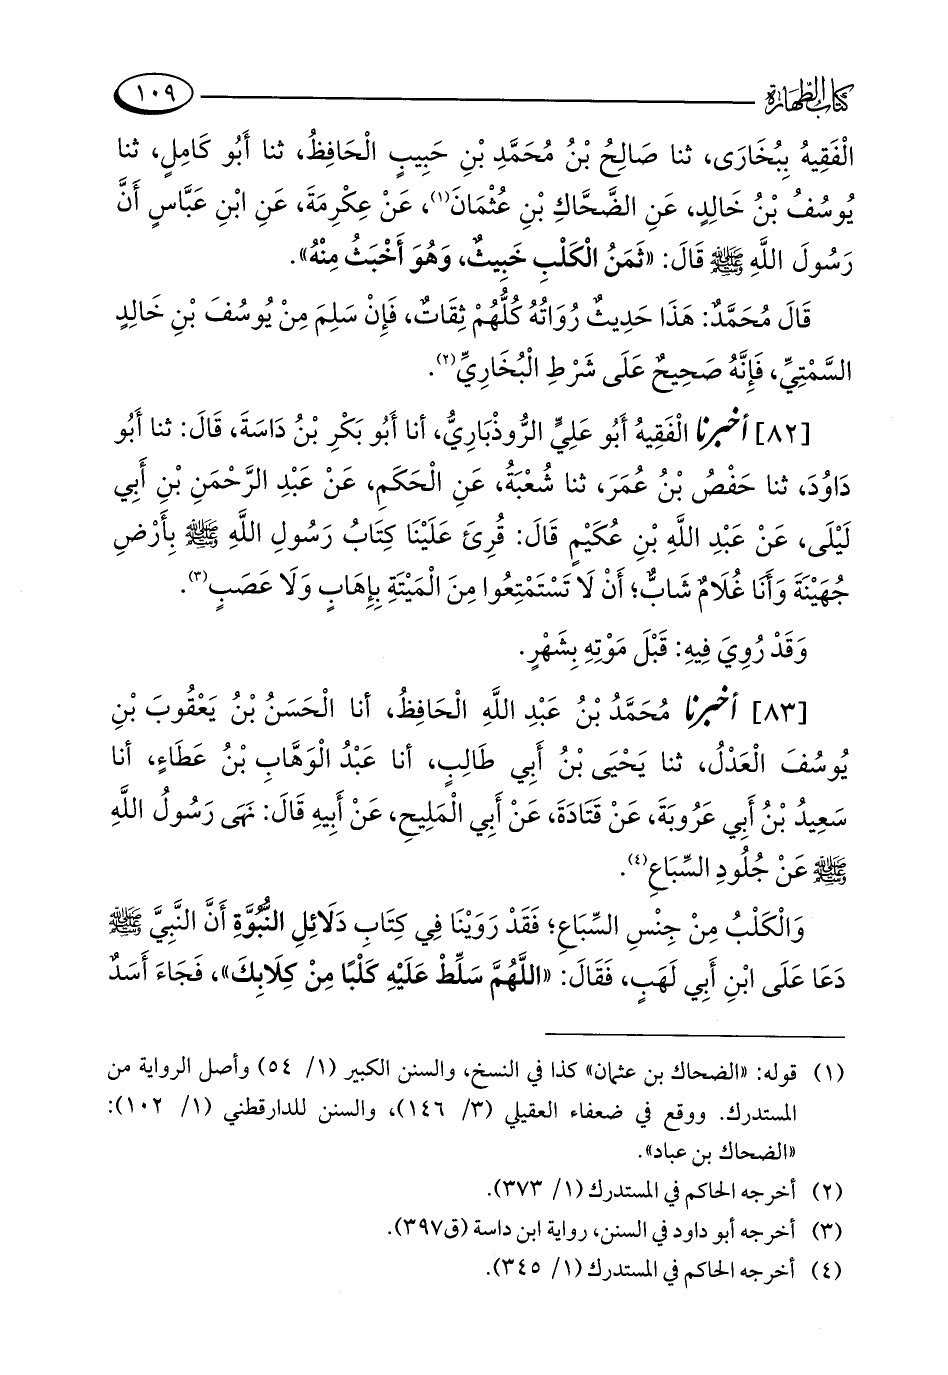 كتاب الطهارة
١٠٩
الْفَقِيهُ بِبُخَارَى، ثنا صَالِحُ بْنُ مُحَمَّدِ بْنِ حَبِيبٍ الْحَافِظُ، ثنا أَبُو كَامِلٍ، ثنا
يُوسُفُ بْنُ خَالِدٍ، عَنِ الضَّحَّاكِ بْنِ عُثْمَانَ(١)، عَنْ عِكْرِمَةَ، عَنِ ابْنِ عَبَّاسٍ أَنَّ
رَسُولَ اللَّهِ ﷺ قَالَ: «ثَمَنُ الْكَلْبِ خَبِيثٌ، وَهُوَ أَخْبَثُ مِنْهُ».
قَالَ مُحَمَّدٌ: هَذَا حَدِيثٌ رُوَاتُهُ كُلُّهُمْ ثِقَاتٌ، فَإِنْ سَلِمَ مِنْ يُوسُفَ بْنِ خَالِدٍ
السَّمْتِيِّ، فَإِنَّهُ صَحِيحٌ عَلَى شَرْطِ الْبُخَارِيِّ(٢).
[٨٢] أخبرنا الْفَقِيهُ أَبُو عَلِيٍّ الرُّوذْبَارِيُّ، أنا أَبُو بَكْرِ بْنُ دَاسَةَ، قَالَ: ثنا أَبُو
دَاوُدَ، ثنا حَفْصُ بْنُ عُمَرَ، ثنا شُعْبَةُ، عَنِ الْحَكَمِ، عَنْ عَبْدِ الرَّحْمَنِ بْنِ أَبِي
لَيْلَى، عَنْ عَبْدِ اللَّهِ بْنِ عُكَيْمٍ قَالَ: قُرِئَ عَلَيْنَا كِتَابُ رَسُولِ اللَّهِ ﷺ بِأَرْضِ
جُهَيْنَةَ وَأَنَا غُلَامٌ شَابٌّ؛ أَنْ لَا تَسْتَمْتِعُوا مِنَ الْمَيْتَةِ بِإِهَابٍ وَلَا عَصَبٍ(٣).
وَقَدْ رُوِيَ فِيهِ: قَبْلَ مَوْتِهِ بِشَهْرٍ.
[٨٣] أخبرنا مُحَمَّدُ بْنُ عَبْدِ اللَّهِ الْحَافِظُ، أنا الْحَسَنُ بْنُ يَعْقُوبَ بْنِ
يُوسُفَ الْعَدْلُ، ثنا يَحْيَى بْنُ أَبِي طَالِبٍ، أنا عَبْدُ الْوَهَّابِ بْنُ عَطَاءٍ، أنا
سَعِيدُ بْنُ أَبِي عَرُوبَةَ، عَنْ قَتَادَةَ، عَنْ أَبِي الْمَلِيحِ، عَنْ أَبِيهِ قَالَ: نَهَى رَسُولُ اللَّهِ
ﷺ عَنْ جُلُودِ السِّبَاعِ(٤).
وَالْكَلْبُ مِنْ جِنْسِ السِّبَاعِ؛ فَقَدْ رَوَيْنَا فِي كِتَابِ دَلَائِلِ النُّبُوَّةِ أَنَّ النَّبِيَّ ﷺ
دَعَا عَلَى ابْنِ أَبِي لَهَبٍ، فَقَالَ: «اللَّهُمَّ سَلِّطْ عَلَيْهِ كَلْبًا مِنْ كِلَابِكَ»، فَجَاءَ أَسَدٌ
(١) قوله: «الضحاك بن عثمان» كذا في النسخ، والسنن الكبير (١/ ٥٤) وأصل الرواية من
المستدرك. ووقع في ضعفاء العقيلي (٣/ ١٤٦)، والسنن للدارقطني (١/ ١٠٢):
«الضحاك بن عباد».
(٢) أخرجه الحاكم في المستدرك (١/ ٣٧٣).
(٣) أخرجه أبو داود في السنن، رواية ابن داسة (ق٣٩٧).
(٤) أخرجه الحاكم في المستدرك (١/ ٣٤٥).